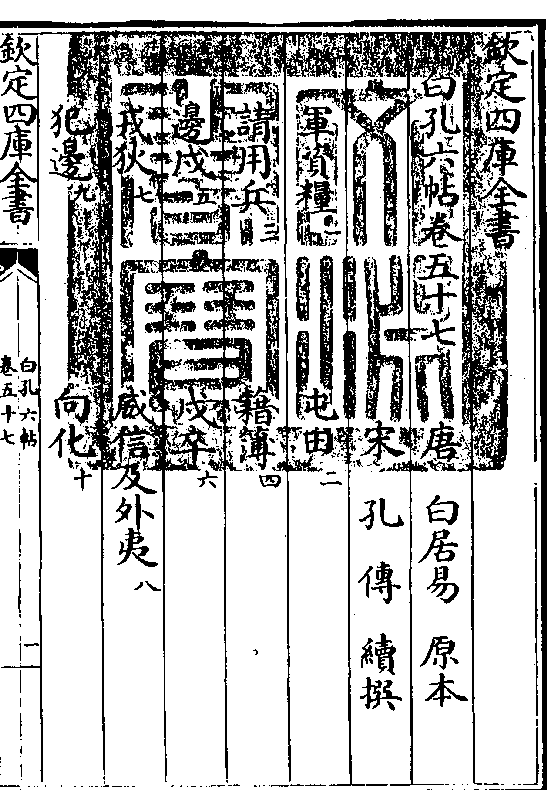 欽定四庫全書
白孔六帖卷五十七
唐 白居易 原本
宋 孔傳 續撰
軍資糧一 屯田二
請用兵三 籍簿四
邊戍五 戍卒六
戎狄七 威信及外夷八
犯邊九 向化十
欽定四庫全書
白孔六帖
卷五十七
一